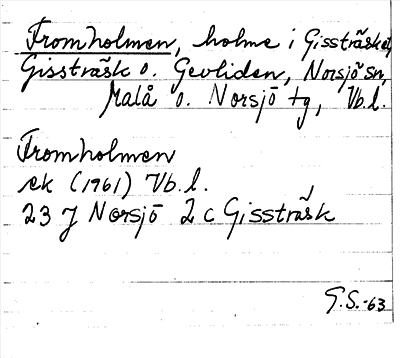 Fromholmen, holme i Gissträsket,
Gissträsk o. Gevliden, Norsjö sn,
Malå o. Norsjö tg, Vb.l.
Fromholmen
ek (1961) Vb.l.
23 J Norsjö 2 c Gissträsk
G.S.-63